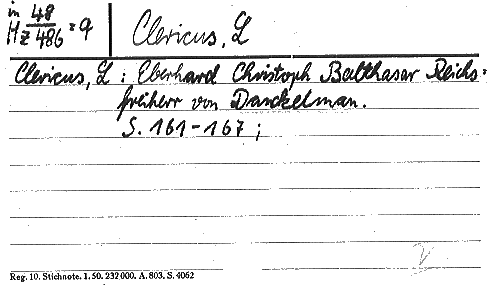 in 48
Hz 486 = 9
Clericus, L
Clericus, L : Eberhard Christoph Balthasar Reichs=
freiherr von Danckelman.
S. 161-167 ;
Reg. 10. Stichnote. 1. 50. 232000. A. 803. S. 4062